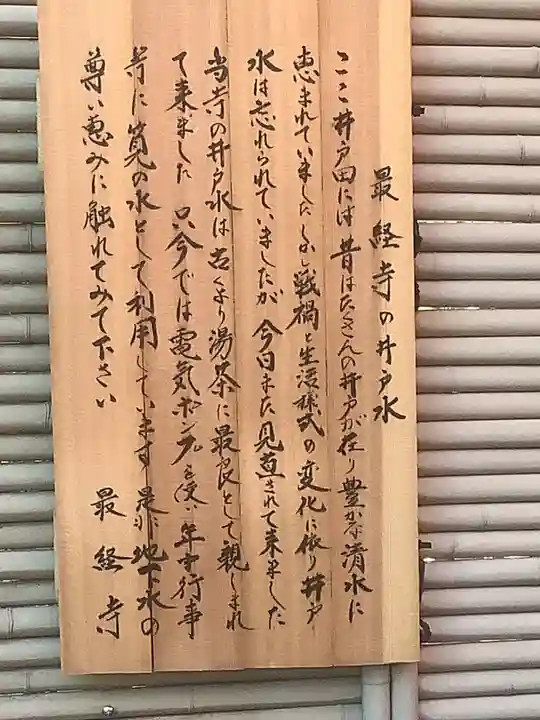 最経寺の井戸水
ここ井戸田には昔はたくさんの井戸が在り豊かな清水に
恵まれていましたしかし戦禍と生活様式の変化に依り井戸
水は忘れられていましたが今日また見直されて来ました
当寺の井戸水は古くより湯茶に最良として親しまれ
て来ました只今では電気ポンプを使い年中行事
等に筧の水として利用しています是非地下水の
尊い恵みに触れてみて下さい
最経寺